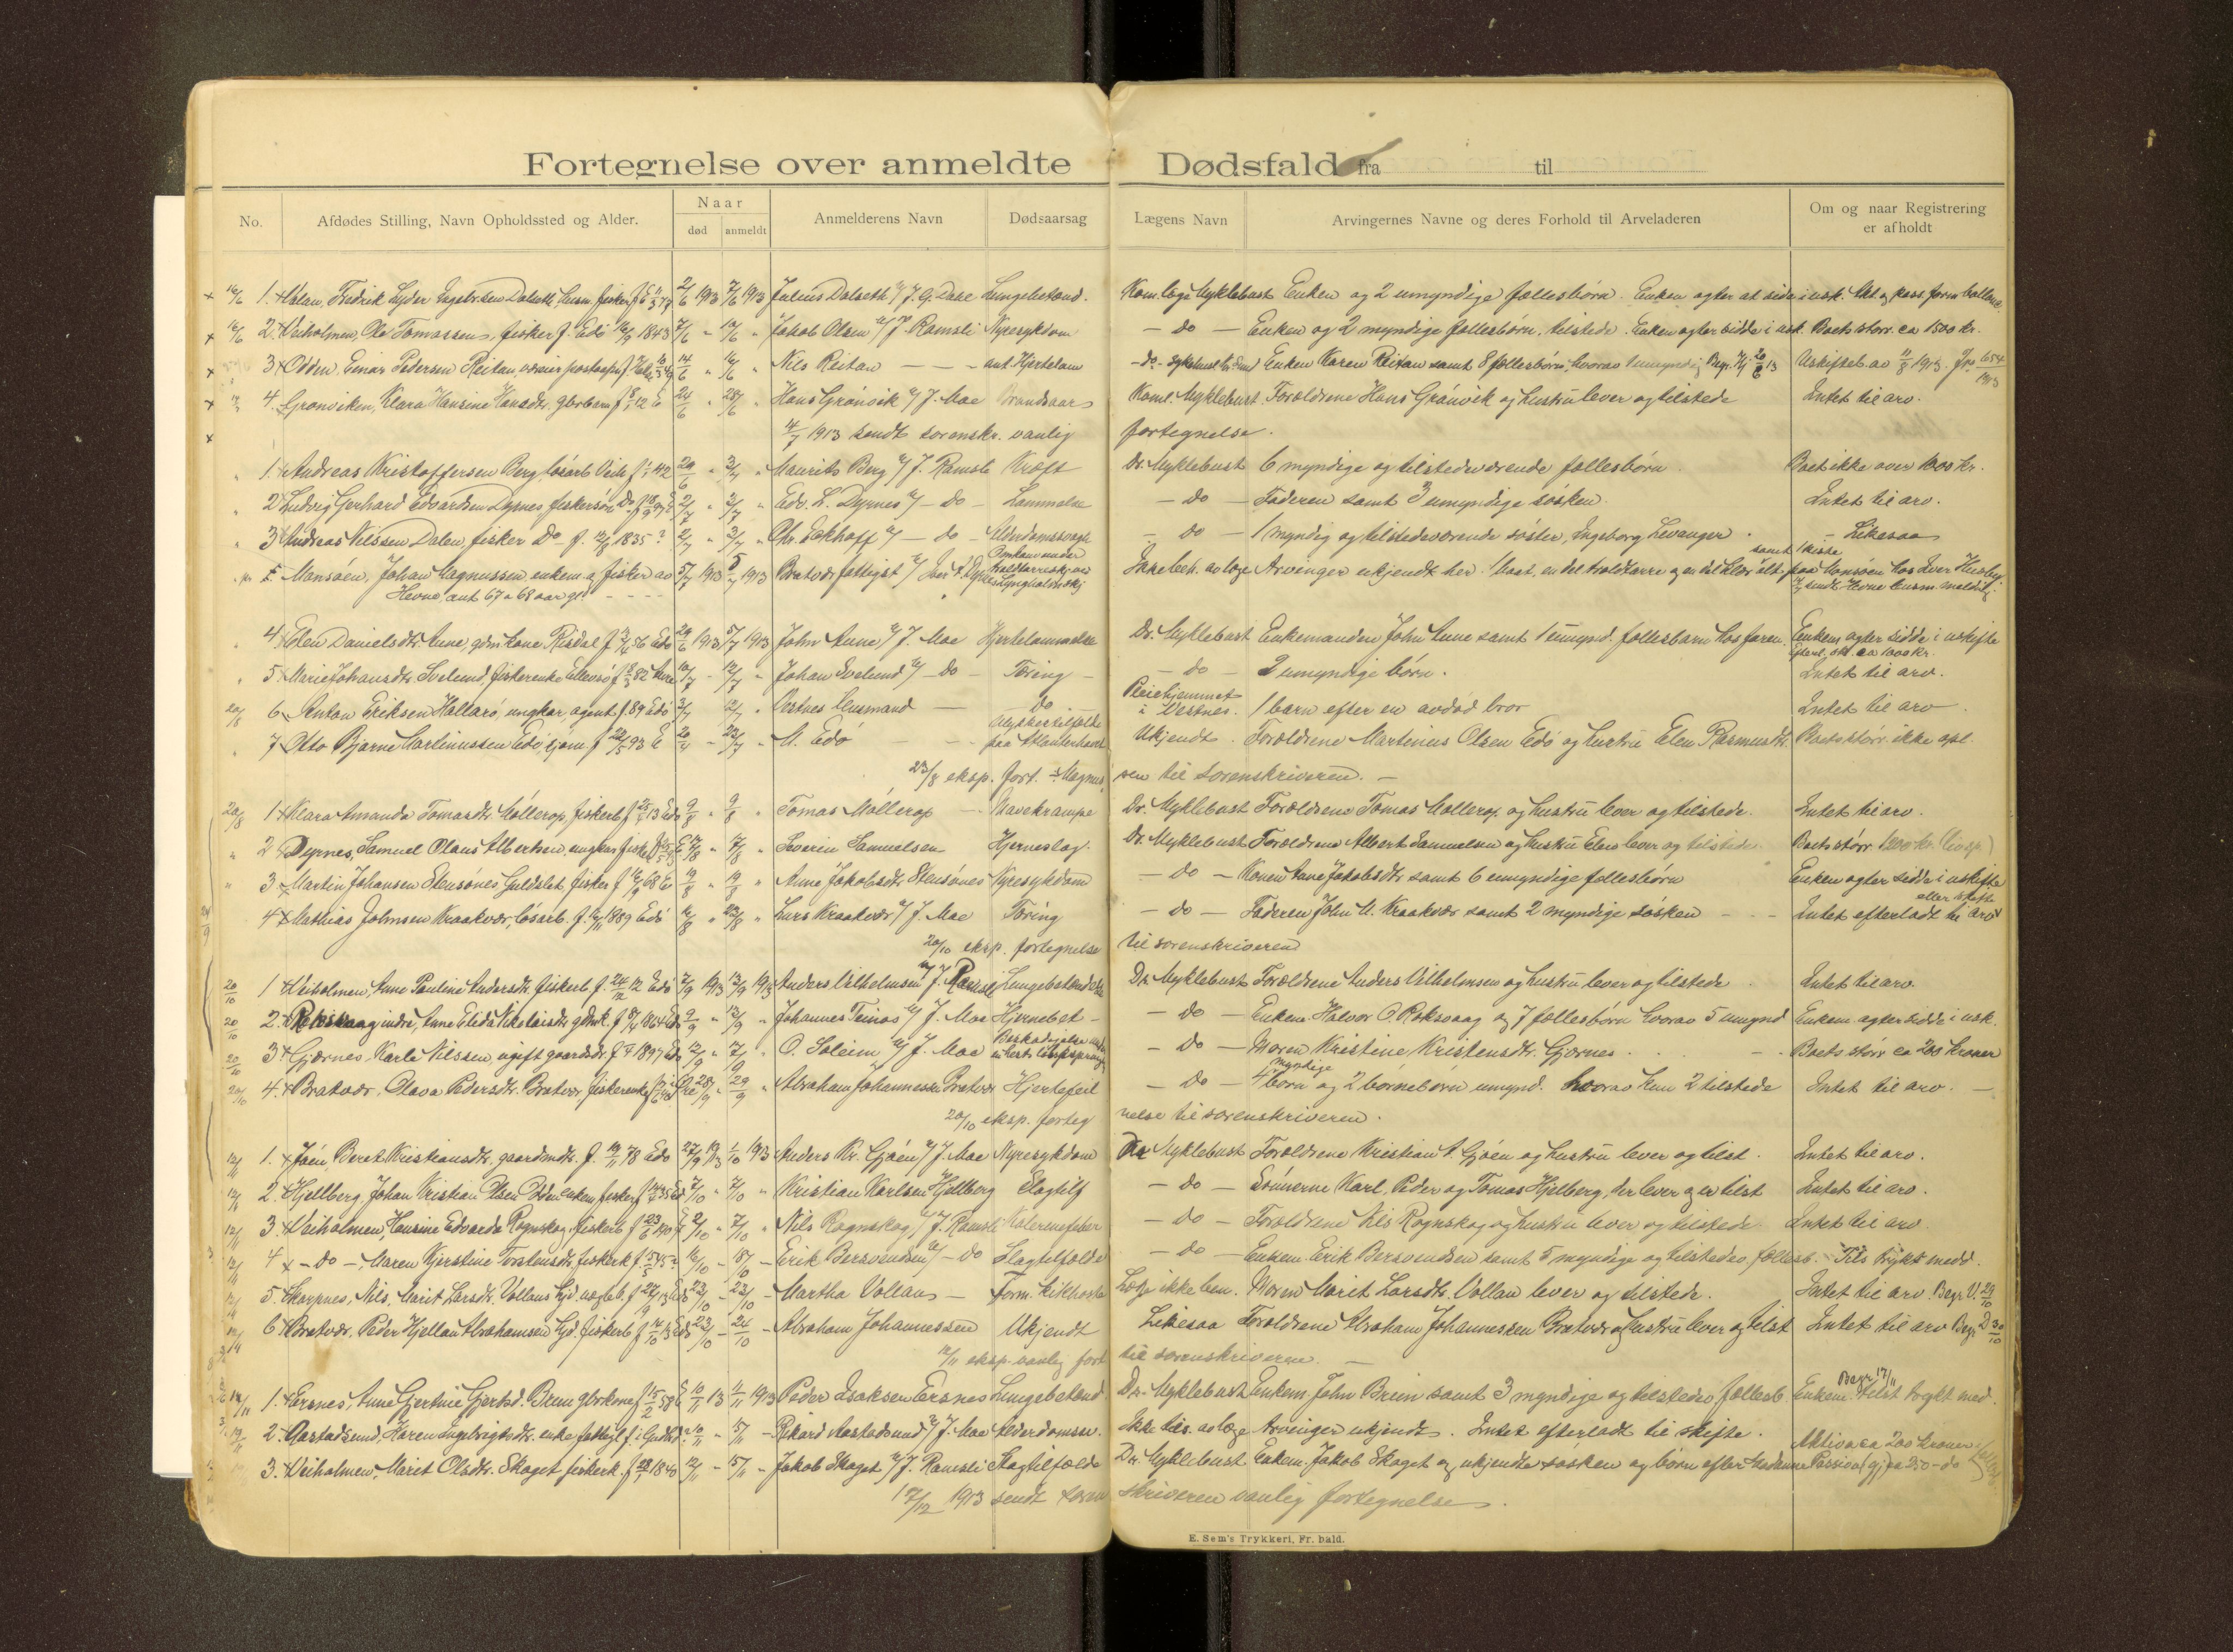 Fortegnelse over anmeldte Dødsfald fra til
No. Afdødes Stilling, Navn Opholdssted og Alder. Naar død anmeldt Anmelderens Navn Dødsaarsag Lægens Navn Arvingernes Navne og deres Forhold til Arveladeren Om og naar Registrering er afholdt
16/6 1. Fredrik Lyder Dalseth fisker 2/6 1913 7/6 1913 Julius Dalseth Lungebetænd. Kom.læge Myklebust Enken og 2 umyndige fællesbørn. Enken agter at side i usk.
16/6 2. Veiholmen, Ole Tomassen, fisker f. Edö 1843 7/6 " 14/6 " Jakob Olsen v/ J. Ramsli Nyresykdom – do – Enken og 2 myndige fællesbørn, tilstede. Enken agter sidde i usk. Boets störr. ca 1500 kr.
3 Odden, Einar Pedersen Reitan, 14/6 " 16/6 " Nils Reitan – – – ant. Hjertelam – do – Enken Karen Reitan samt 8 fællesbörn, hvorav 1 umyndig Uskifteb. av 11/8 1913. Jno 654/1913
4. Grönviken, Klara Hansine Hansdtr. 24/6 " 28/6 " Hans Grönvik v/ J. Moe Brandsaar Koml. Myklebust. Forældrene Hans Grönvik og hustru lever og tilstede Intet til arv.
14/7 1913 sendt sorenskr. vanlig fortegnelse.
1. Andreas Kristoffersen Berg, lösarb. 29/6 " 3/7 " Maurits Berg v/ J. Ramsli Kræft Dr. Myklebust 6 myndige og tilstedeværende fællesbörn Boet ikke over 1000 kr.
2 Ludvig Gerhard Edvardsen Dyrnes fiskersön 2/7 " 3/7 " Edv. L. Dyrnes v/ – do – Lammelse – do – Faderen samt 3 umyndige sösken. Intet til arv.
3 Andreas Nilssen Dalen, fisker Do f. 1835? 2/7 " 3/7 " Chr. Eckhoff v/ – do – – do – 1 myndig og tilstedeværende söster, Ingeborg Levanger. – Likesaa
Mansöen, Johan Magnussen enkem. og fisker av 5/7 1913 8/7 1913 Bratvær fattigst. Ikke beh. av læge Arvinger ukjendt her. 1 baat, en del troldtarre og en del klær alt paa Mansöen hos Iver Husby. samt 1 kiste
Hevne, ant 67 a 68 aar gl. – – – – sendt Hevne lensm. meldg.
4 Elen Danielsdtr. Aune, gdm.kone Risdal f. 56 Edö 29/6 1913 5/7 1913 John Aune v/ J. Moe Hjertelammelse Dr. Myklebust Enkemanden John Aune samt 1 umynd. fællesbarn hos faren. Enkem. agter sidde i uskifte ca 1000 kr.
5. Marie Johansdtr. Svelund, fiskerenke 82 Aure 10/7 – 12/7 " Johan Svelund v/ – do – Tæring – – do – 2 umyndige börn. Intet til arv.
20/8 6 Anton Eriksen Hallarö, ungkar, agent f. 89 Edö 3/7 12/7 " Vestnes lensmand – do Pleiehjemmet i Vestnes. 1 barn efter en avdöd bror Intet til arv
7 Otto Bjarne Martinussen Edö, sjöm. f 93 E 20/4 – 23/7 " M. Edö – – ulykkestilfælde paa Atlanterhavet Ukjendt. Forældrene Martinus Olsen Edö og hustru Elen Rasmusdtr. Boets störr. ikke opl.
23/8 eksp. fort. – Magnussen til sorenskriveren. –
20/8 1 Klara Amanda Tomasdtr Möllerop, fiskerb. f 13 Edö 9/8 9/8 " Tomas Möllerop – Mavekrampe Dr. Myklebust Forældrene Tomas Möllerop og hustru lever og tilstede. Intet til arv.
2 Dyrnes, Samuel Olaus Albertsen, ungkar fisker 17/8 " Severin Samuelsen Hjerneslag. Dr. Myklebust Forældrene Albert Samuelsen og hustru lever og tilstede Boets störr. 1200 kr.
3 Martin Johansen Stensönes Guldslet, fisker f 68 E 14/8 " 19/8 " Anne Jakobsdtr. Stensönes Nyresykdom – do – Konen Anne Jakobsdtr. samt 6 umyndige fællesbörn Enken agter sidde i uskifte
4 Mathias Johnsen Kraakvær, lösarb. f. 1889 Edö 16/8 " 23/8 " Lars Kraakvær v/ J. Moe Tæring – do – Faderen John M. Kraakvær samt 2 myndige sösken – – Intet efterladt til arv
20/10 eksp. fortegnelse til sorenskriveren
20/10 1 Veiholmen, Anne Pauline Andersdtr. fiskerb. f. 24/12 12 Edö 7/9 1913 13/9 1913 Anders Vilhelmsen v/ J. Ramsli Lungebetændelse Dr. Myklebust Forældrene Anders Vilhelmsen og hustru lever og tilstede Intet til arv.
20/10 2. Rokvaag indre, Anne Elida Nikolaisdtr. 1864 9/9 " 13/9 " Johannes Teinæs v/ J. Moe Hjernebet – – do – Enkem. Halvor O. Roksvaag og 7 fællesbörn hvorav 5 umynd Enkem. agter sidde i usk.
20/10 3. Gjernes, Karl Nilssen, ugift 1897 12/9 " 17/9 " O. Soleim v/ J. Moe – do – Moren Kristine Kristensdtr. Gjernes. – Boets störr ca 200 kroner
20/10 4. Bratvær, Olava Pedersdtr. Bratvær fiskerenke 28/9 29/9 " Abraham Johannessen Bratvær Hjertefeil – do – 4 myndige börn og 2 börnebörn umynd. hvorav kun 2 tilstede Intet til arv. –
20/10 eksp. fortegnelse til sorenskriveren.
12/11 1. Joén, Beret Kristiansdtr. gaardmdtr. f. 78 Edö 27/9 13 1/10 1913 Anders Kr. Gjöén v/ J. Moe Nyresykdom Dr Myklebust Forældrene Kristian A. Gjöén og hustru lever og tilst. Intet til arv.
12/11 2. Hjellberg, Johan Kristian Olsen Odden enkem. fisker 7/10 – 7/10 " Kristian Karlsen Hjellberg Slagtilf – do – Sönnerne Karl, Peder og Tomas Hjelberg, der lever og er tilst Intet til arv.
12/11 3. Veiholmen, Hansine Edvarda Rognskog, fiskerb. 2/10 – 7/10 " Nils Rognskog v/ J. Ramsli – do – Forældrene Nils Rognskog og hustru lever og tilstede Intet til arv.
12/11 4 – do – Maren Kjerstine Torstensdtr. fiskerk. 16/10 – 18/10 – Erik Bersvendsen v/ – do Slagtilfælde – do – Enkem. Erik Bersvendsen samt 5 myndige og tilstedev. fællesb. – Tils. trykt medd.
12/11 5. Skarpnes, Nils, Marit Larsdtr. Vollans 23/10 – 23/10 – Martha Vollan – Form. kikhoste Læge ikke ben. Moren Marit Larsdtr. Vollan lever og tilstede. Intet til arv. Begr. 29/10
12/11 6 Bratvær, Peder Hjellan Abrahamsen fiskerb. f. 13 Edö 23/10 – 24/10 – Abraham Johannessen Ukjendt Likesaa Forældrene Abraham Johannessen Bratvær og hustru lever og tilst Intet til arv Begr. 30/10
12/11 eksp. vanlig fort til sorenskriveren. –
1. Ersnes, Anne Gjertine Gjertsd. Brun 10/11 13 11/11 1913 Peder Isaksen Ersnes Lungebetænd Dr. Myklebust Enkem. John Brun samt 3 myndige og tilstedev. fællesb. Enkem. tilst. trykt med. Begr 17/11
2. Aastadsund, Karen Ingebrigtsdtr. enke 10/11 – 15/11 – Rikard Aastadsund v/ J. Moe Alderdomssv. Ikke tils. av læge Arvinger ukjendt. Intet efterladt til skifte.
3. Veiholmen, Marit Olsdtr. Skaget fiskerk. 1840 12/11 – 15/11 – Jakob Skaget v/ J. Ramsli Slagtilfælde Dr. Myklebust Enkem. Jakob Skaget og ukjendte sösken og börn efter Aktiva ca 200 kroner Passiva
17/12 1913 sendt sorenskriveren vanlig fortegnelse.
E. Sem's Trykkeri, Fr.hald.